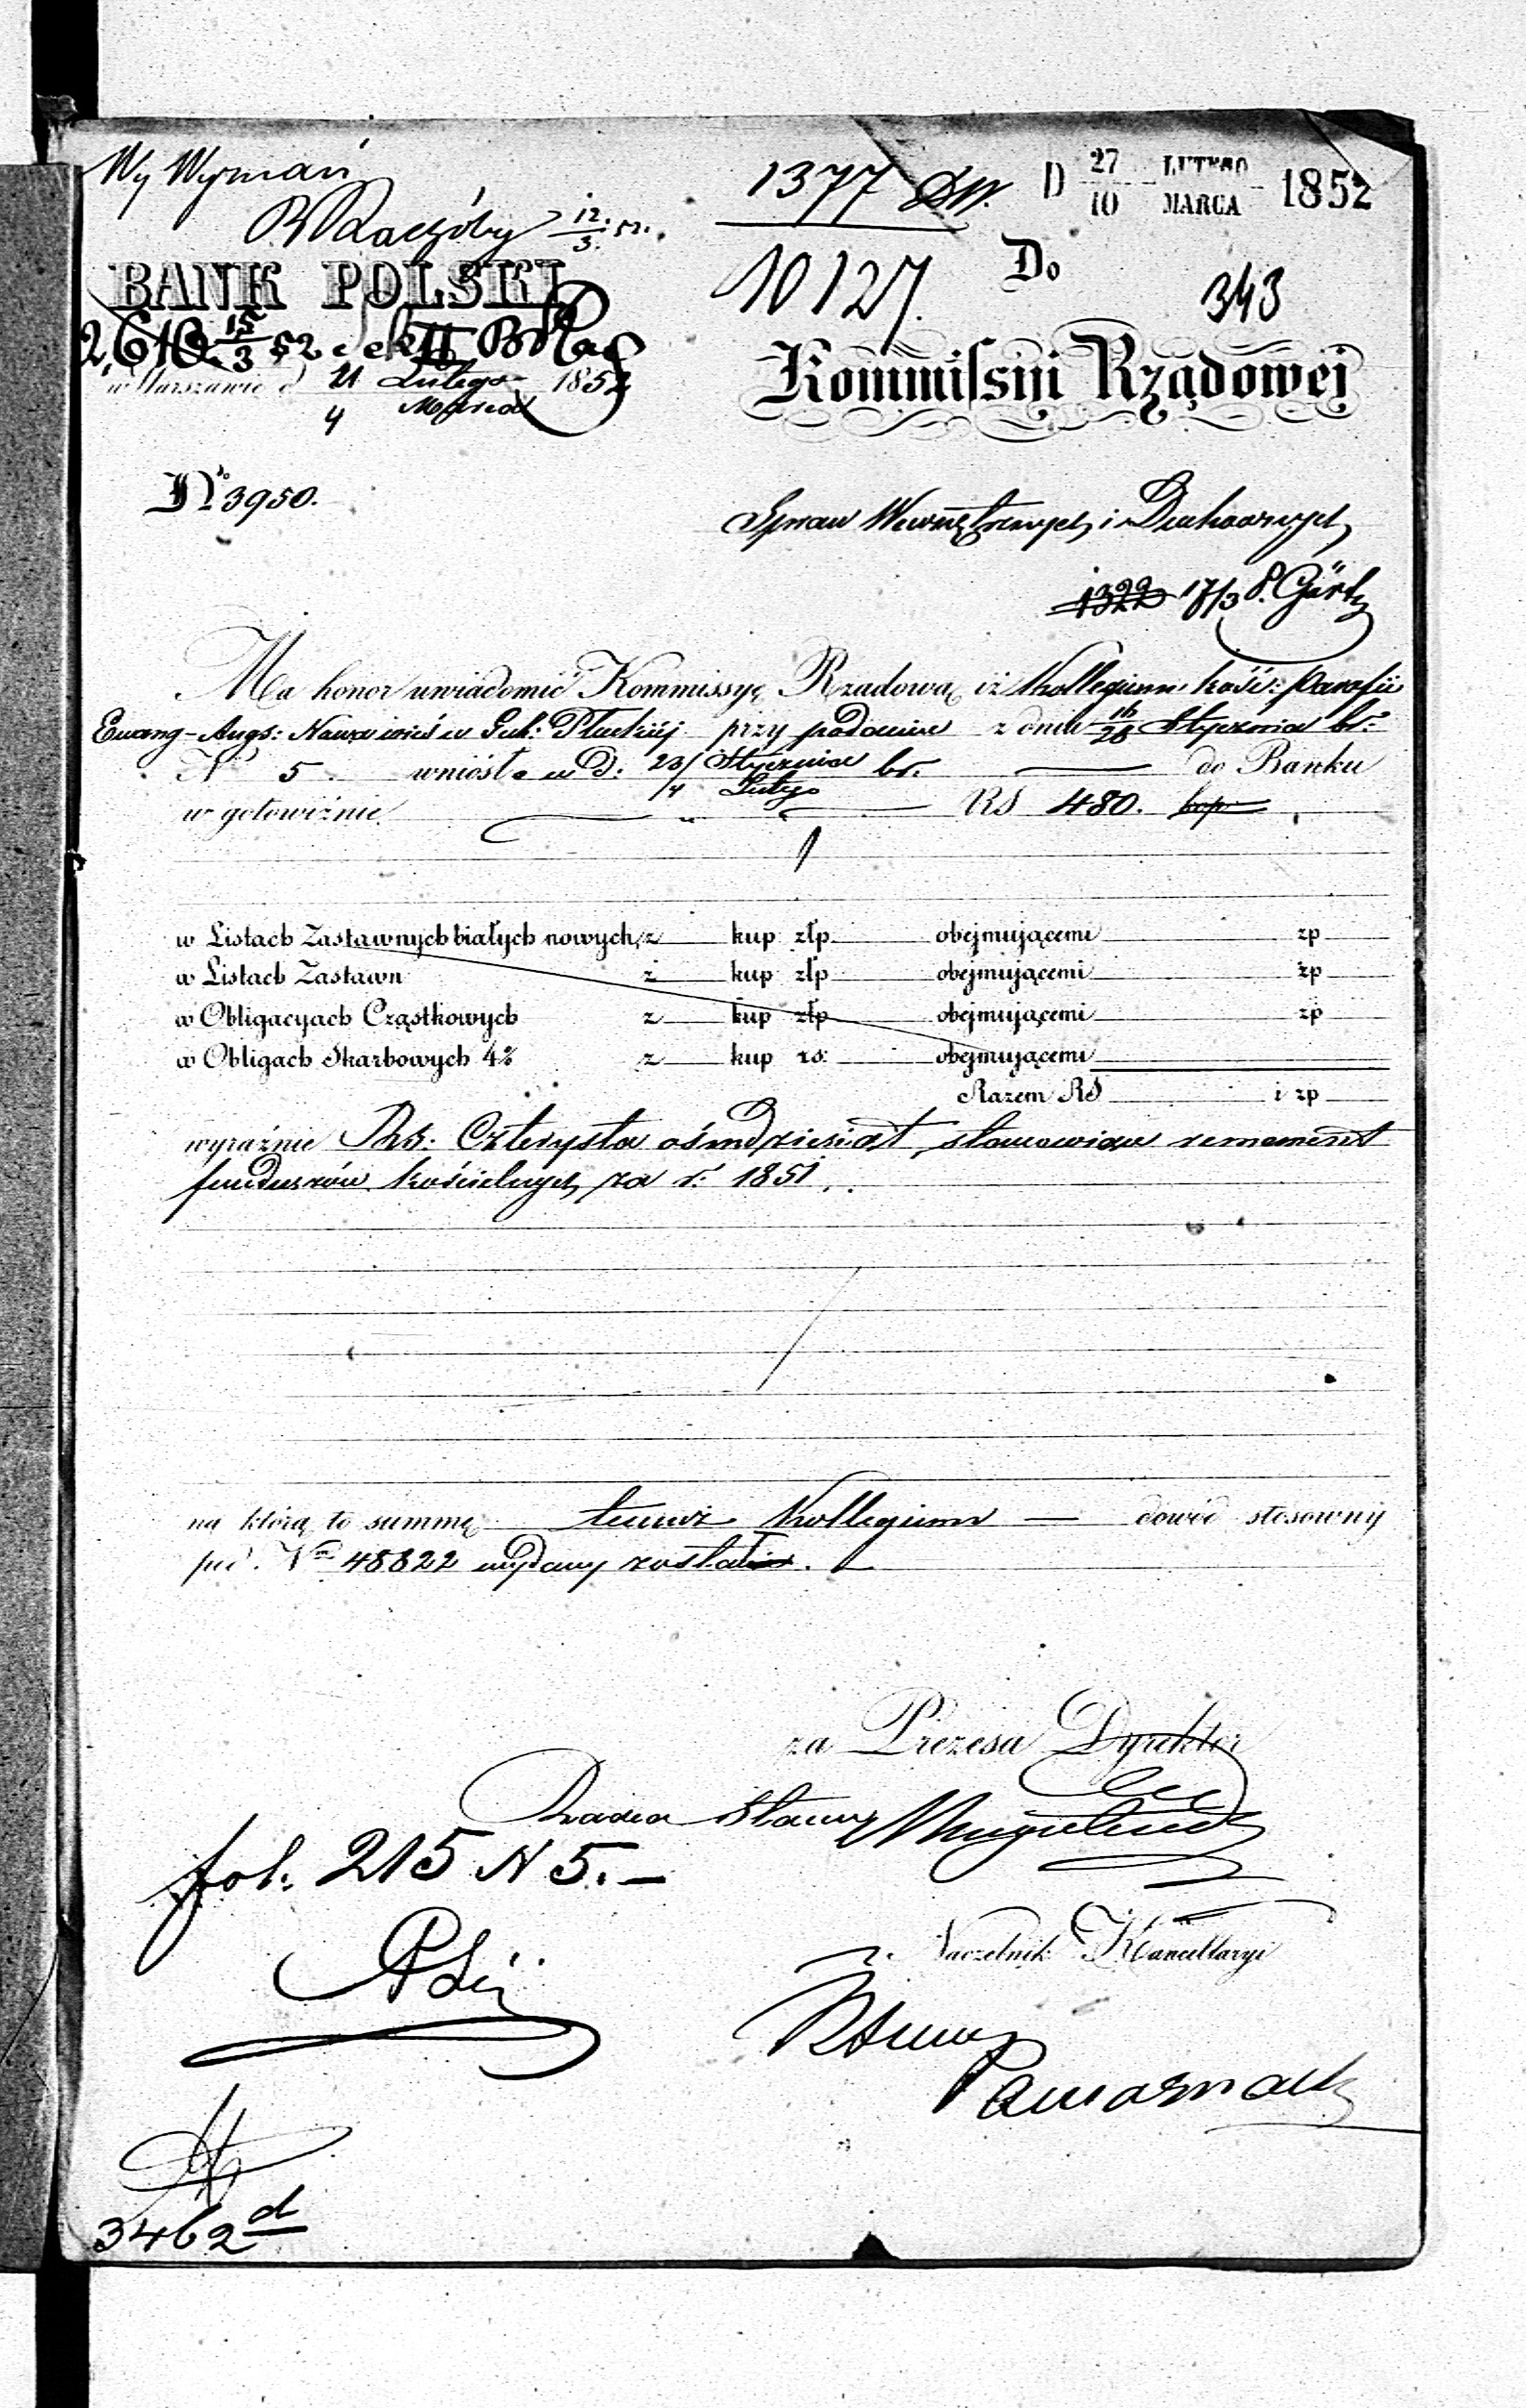 Wy Wyznań
1377 D 27/10 LUTEGO/MARCA 1852
12/3. 52.
BANK POLSKI
10127. Do 343
15/3 52
Kommissyi Rządowej
w Warszawie d 21/4 Lutego/Marca 1852
No 3950.
Spraw Wewnętrznych i Duchownych
1322 17/3
Ma honor uwiadomić Kommissyę Rządową iż Kollegium kość: Parafii
Ewang-Augs: w Gub: Płockiéj przy podaniu z dnia 16/28 Stycznia br.
N 5 wniosło w d: 23/4 Stycznia/Lutego br. — do Banku
w gotowiźnie RS 480. kop —
w Listach Zastawnych białych nowych z kup złp obejmującemi zp
w Listach Zastawn z kup złp obejmującemi zp
w Obligacyach Cząstkowych z kup złp obejmującemi zp
w Obligach Skarbowych 4% z kup rs: obejmującemi
Razem RS i zp
wyraźnie Rs: Czterysta ośmdziesiąt, stanowiąc remanent
funduszów kościelnych za r: 1851.
na którą to summę temuż Kollegium — dowód stosowny
pod Nm 48822 wydany został.
za Prezesa Dyrektor
Radca Stanu
fol: 215 N 5.—
Naczelnik Kancellaryi
3462 d